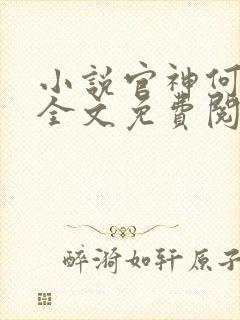 小説官神何
全文免費閱
醉漪如轩原子